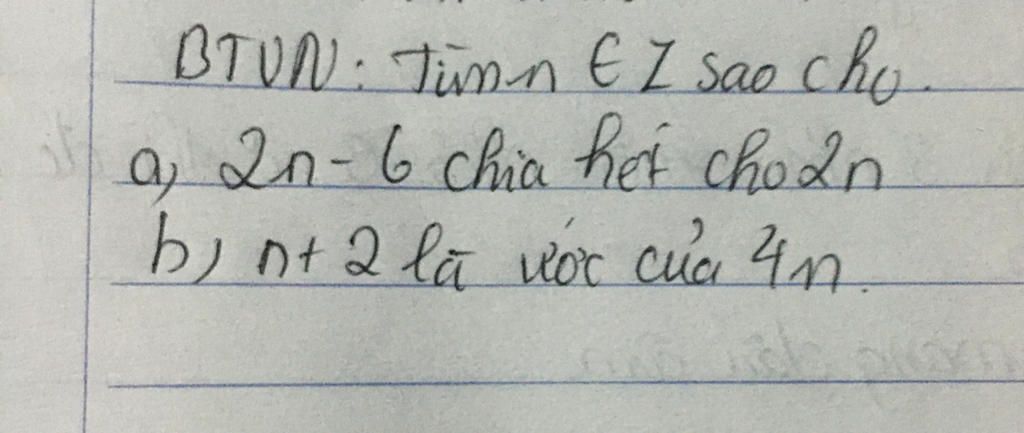 BTVN: Tìm n ∈ Z sao cho.
a, 2n - 6 chia hết cho 2n
b) n + 2 là ước của 4n.